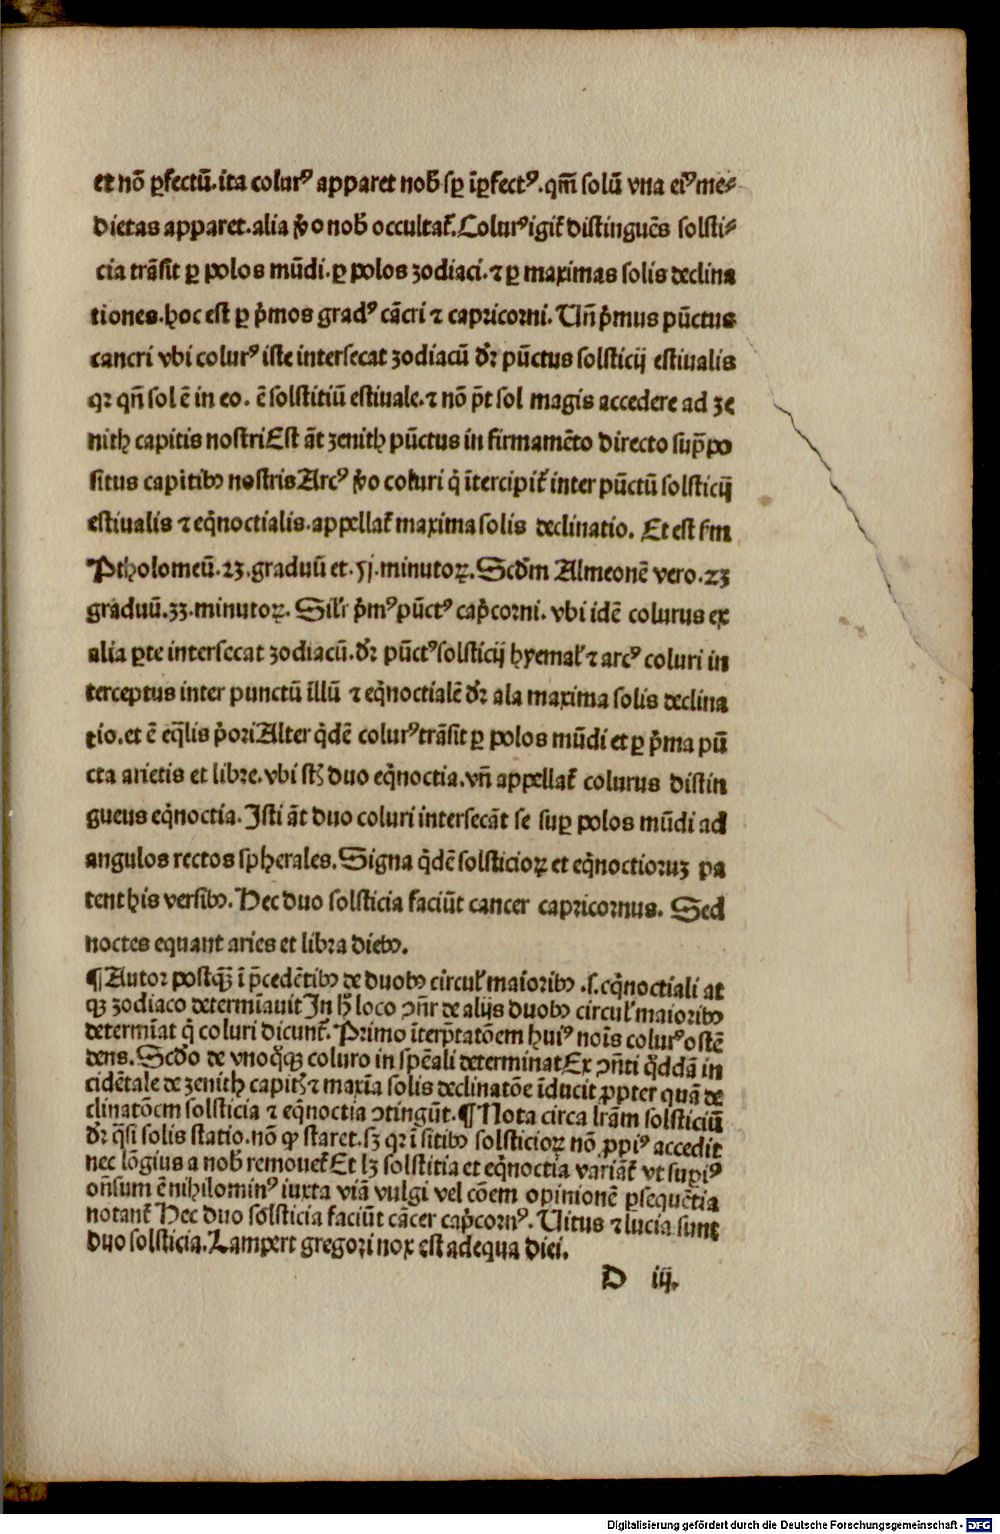 et nō ꝑfectū. ita colurꝰ apparet nob̄ sꝑ īꝑfectꝰ. qm̄ solū vna eiꝰ me⸗
dietas apparet. alia v̓o nob̄ occultat᷑. Colurꝰ igit᷑ distinguēs solsti⸗
cia trāsit ꝑ polos mūdi. ꝑ polos zodiaci. ⁊ ꝑ maximas solis declina
tiones. hoc est ꝑ pͥmos gradꝰ cācri ⁊ capricorni. Un̄ pͥmus pūctus
cancri vbi colurꝰ iste intersecat zodiacū dr̄ pūctus solsticij estiualis
qꝛ qn̄ sol ē in eo. ē solstitiū estiuale. ⁊ nō pt̄ sol magis accedere ad ze
nith capitis nostri Est āt zenith pūctus in firmamēto directo sup̄po
situs capitibꝰ nostris Arcꝰ v̓o coluri qͥ ītercipit᷑ inter pūctū solsticij
estiualis ⁊ eqͥnoctialis. appellat᷑ maxima solis declinatio. Et est ẜm
Ptholomeū. 23. graduū et. 51. minutoꝝ. Scd̓m Almeonē vero. 23
graduū. 33. minutoꝝ. Silr̄ pͥmꝰ pūctꝰ capͥcorni. vbi idē colurus ex
alia ꝑte intersecat zodiacū. dr̄ pūctꝰ solsticij hyemal̓ ⁊ arcꝰ coluri in
terceptus inter punctū illū ⁊ eqͥnoctialē dr̄ ala maxima solis declina
tio. et ē eq̄lis pͥori Alter qͥdē colurꝰ trāsit ꝑ polos mūdi et ꝑ pͥma pū
cta arietis et libre. vbi st̄ duo eqͥnoctia. vn̄ appellat᷑ colurus distin
gueus eqͥnoctia. Isti āt duo coluri intersecāt se suꝑ polos mūdi ad
angulos rectos spherales. Signa qͥdē solsticioꝝ et eqͥnoctioruꝫ pa
tent his versibꝰ. Hec duo solsticia faciūt cancer capricornus. Sed
noctes equant aries et libra diebꝰ.
¶ Autor postqꝫ̄ ī p̄cedētibꝰ de duobꝰ circul̓ maioribꝰ .s. eqͥnoctiali at
qꝫ zodiaco determīauit In h̓ loco ↄn̄r de alijs duobꝰ circul̓ maioribꝰ
determīat qͥ coluri dicunt᷑. Primo īterp̄tatōem huiꝰ noīs colurꝰ ostē
dens. Scd̓o de vnoqͦqꝫ coluro in spēali determinat Ex ↄn̄ti qͦddā in
cidētale de zenith capitꝭ ⁊ maxīa solis declinatōe īducit ꝓpter quā de
clinatōem solsticia ⁊ eqͥnoctia ↄtingūt. ¶ Nota circa lr̄am solsticiū
dr̄ qͣsi solis statio. nō ꝙ staret. sꝫ qꝛ ī sitibꝰ solsticioꝝ nō ꝓpiꝰ accedit
nec lōgius a nob̄ remouet᷑ Et lꝫ solstitia et eqͥnoctia variāt᷑ vt supiꝰ
on̄sum ē nihilominꝰ iuxta viā vulgi vel cōem opinionē ꝑsequētia
notant᷑ Hec duo solsticia faciūt cācer capͥcornꝰ. Uitus ⁊ lucia sunt
duo solsticia. Lampert gregori nox est adequa diei.
D iij.
Digitalisierung gefördert durch die Deutsche Forschungsgemeinschaft - DFG